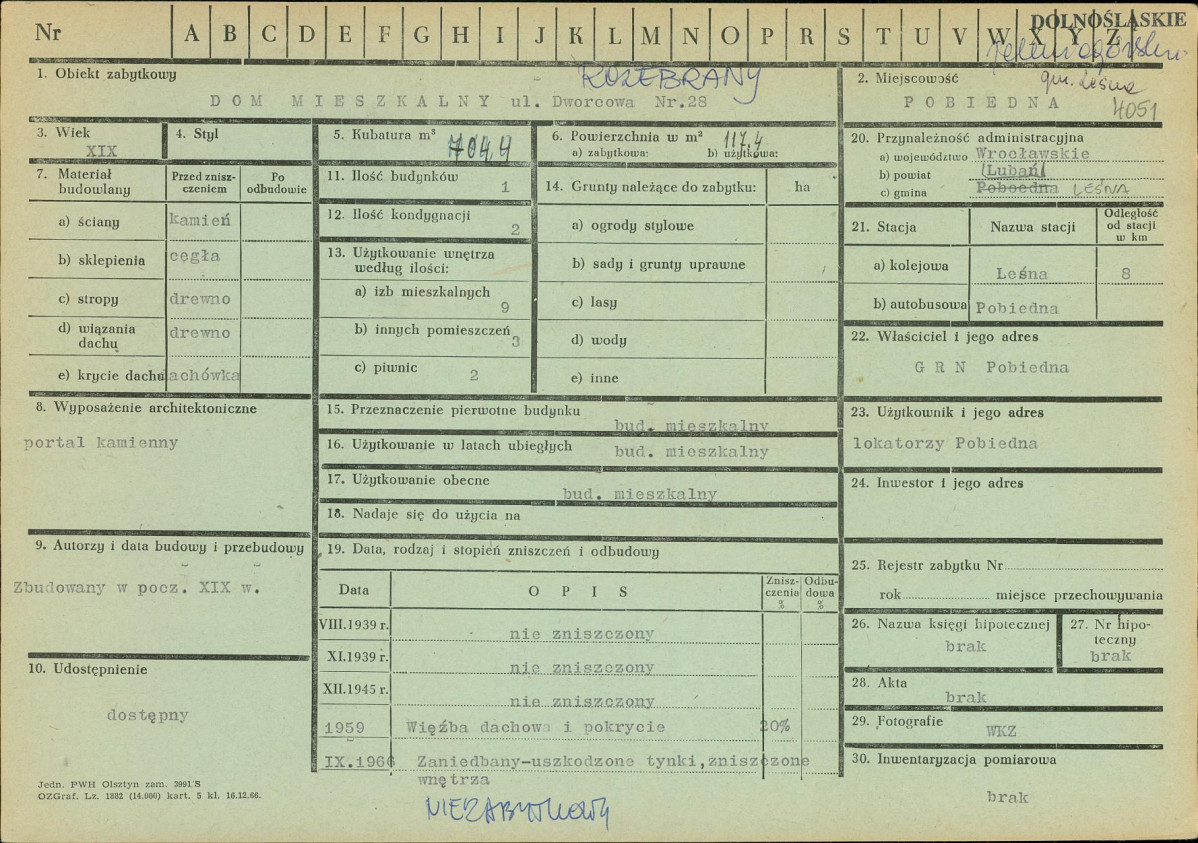 Nr A B C D E F G H I J K L M N O P R S T U V W X Y Z
DOLNOŚLĄSKIE
1. Obiekt zabytkowy
ROZEBRANY
DOM MIESZKALNY ul. Dworcowa Nr.28
2. Miejscowość
gm. Leśna
POBIEDNA
4051
3. Wiek
XIX
4. Styl
5. Kubatura m³
704,4
6. Powierzchnia w m²
117,4
a) zabytkowa: b) użytkowa:
7. Materiał budowlany
Przed zniszczeniem
Po odbudowie
a) ściany kamień
b) sklepienia cęgła
c) stropy drewno
d) wiązania dachu drewno
e) krycie dachu achówka
11. Ilość budynków 1
12. Ilość kondygnacji 2
13. Użytkowanie wnętrza według ilości:
a) izb mieszkalnych 9
b) innych pomieszczeń 3
c) piwnic 2
14. Grunty należące do zabytku: ha
a) ogrody stylowe
b) sady i grunty uprawne
c) lasy
d) wody
e) inne
20. Przynależność administracyjna
a) województwo Wrocławskie
b) powiat (Lubań)
c) gmina Poboedna LEŚNA
21. Stacja
Nazwa stacji
Odległość od stacji w km
a) kolejowa Leśna 8
b) autobusowa Pobiedna
22. Właściciel i jego adres
G R N Pobiedna
8. Wyposażenie architektoniczne
portal kamienny
15. Przeznaczenie pierwotne budynku
bud. mieszkalny
16. Użytkowanie w latach ubiegłych bud. mieszkalny
17. Użytkowanie obecne
bud. mieszkalny
18. Nadaje się do użycia na
23. Użytkownik i jego adres
lokatorzy Pobiedna
24. Inwestor i jego adres
9. Autorzy i data budowy i przebudowy
Zbudowany w pocz. XIX w.
10. Udostępnienie
dostępny
19. Data, rodzaj i stopień zniszczeń i odbudowy
Data
O P I S
Zniszczenia %
Odbudowa %
VIII.1939 r. nie zniszczony
XI.1939 r. nie zniszczony
XII.1945 r. nie zniszczony
1959 Więźba dachowa i pokrycie 20%
IX.1966 Zaniedbany-uszkodzone tynki,zniszczone
wnętrza
NIEZABYTKOWY
25. Rejestr zabytku Nr
rok miejsce przechowywania
26. Nazwa księgi hipotecznej
brak
27. Nr hipoteczny
brak
28. Akta
brak
29. Fotografie
WKZ
30. Inwentaryzacja pomiarowa
brak
Jedn. PWH Olsztyn zam. 3991 S
OZGraf. Lz. 1882 (14.000) kart. 5 kl. 16.12.66.